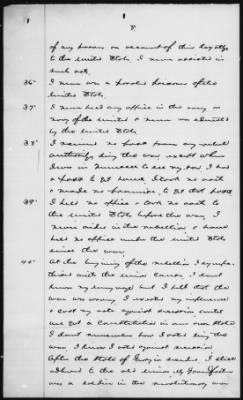 8
of any person on account of his loyalty
to the United States. I never assisted in
such act.
36" I never was a paroled prisoner of the
United States.
37" I never held any office in the army or
navy of the United States & never was
by the United States.
38" I received no pass from any rebel
authority during the war except when
I was in Tennessee to see my son I had
a pass to get home. I took no oath
& made no promise, to get that pass
39" I held no office & took no oath to
the United States before the war, I
never aided in the rebellion & have
held no office under the United States
since the war.
40" At the beginning of the rebellion I sympa-
thized with the union cause, I don't
know my language but I held that the
war was wrong, I exerted my influence
& cast my vote against secession until
we got a constitution in our own state
I don't remember how I voted during the
war, I know I voted against secession
After the State of Georgia seceded, I still
adhered to the old union. My Grandfather
was a soldier in the revolutionary war